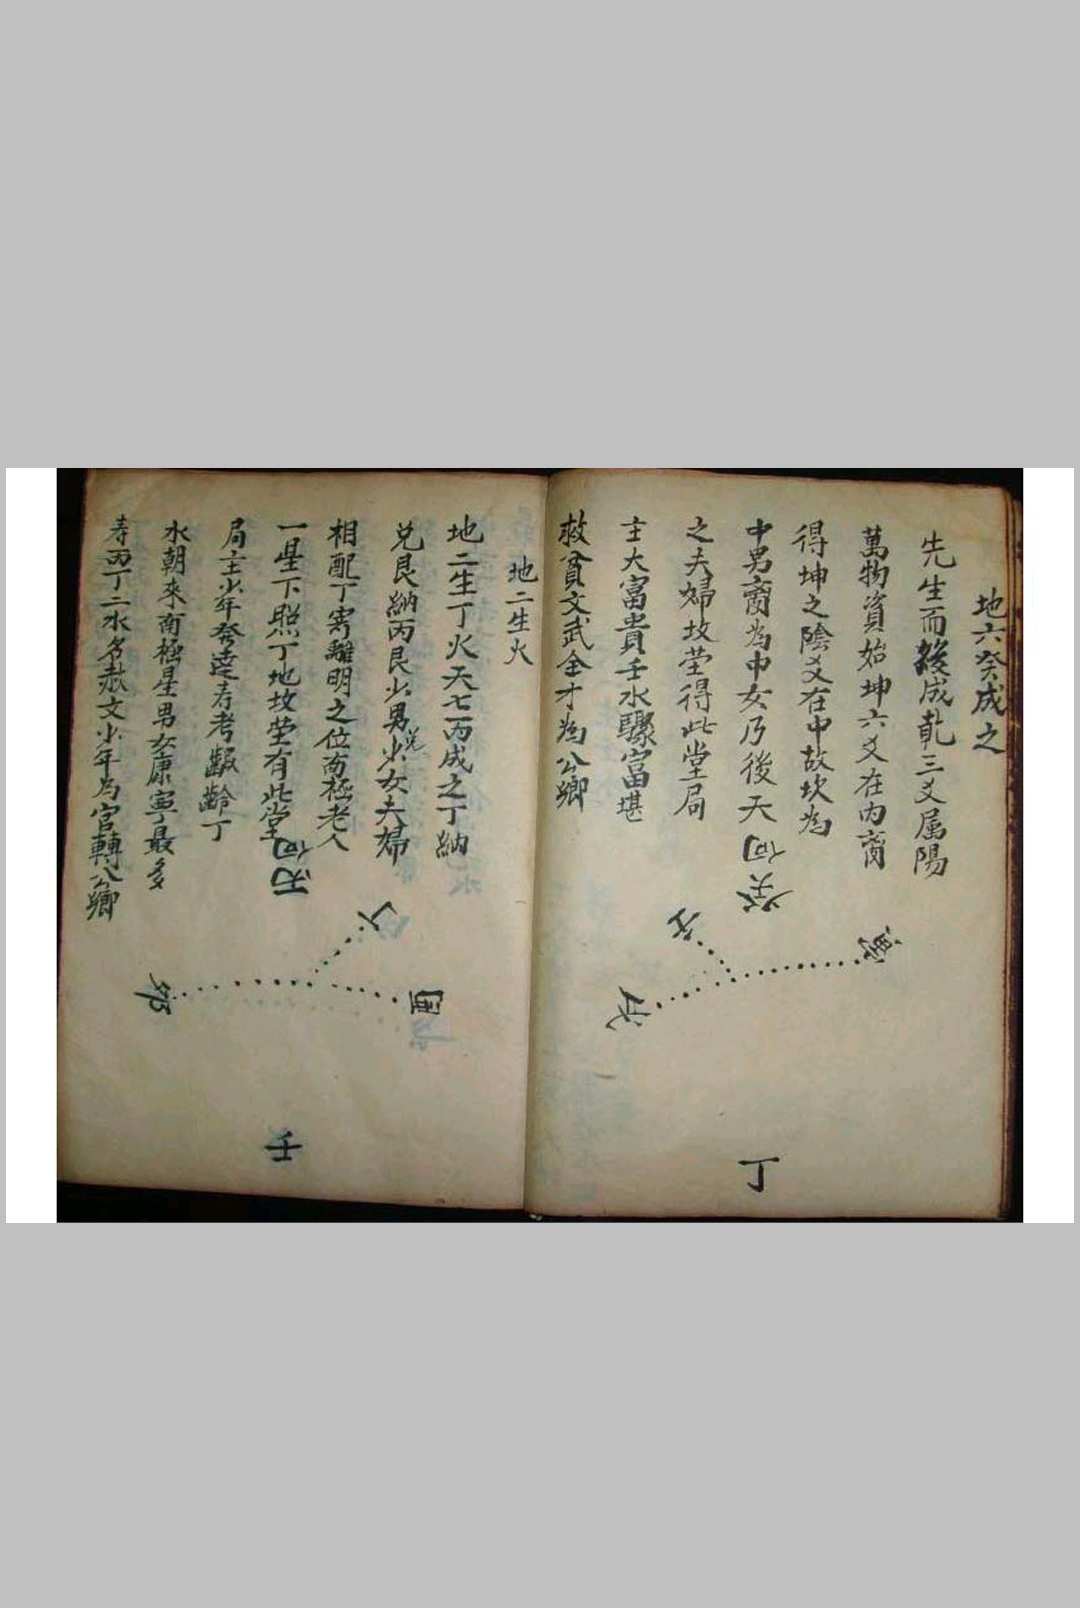 地六癸成之
先生而後成乹三爻属陽
萬物資始坤六爻在內离
得坤之陰爻在中故坎為
中男离為中女乃後天
之夫婦坟茔得此堂局
主大富貴壬水驟富堪
救貧文武全才為公卿
癸向
壬
戌
丁
地二生火
地二生丁火天七丙成之丁納
兌艮納丙艮少男兌少女夫婦
相配丁寄離明之位南極老人
一星下照丁地坟茔有此堂
局主少年發達寿考齯齡丁
水朝來南極星男女康寧最多
寿丙丁二水名赦文少年為官轉公卿
丙向
丁
壬